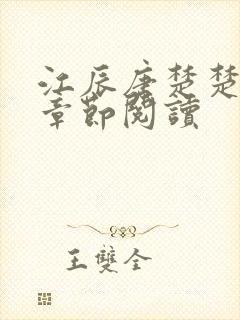 江辰唐楚楚
章節閱讀
王雙全